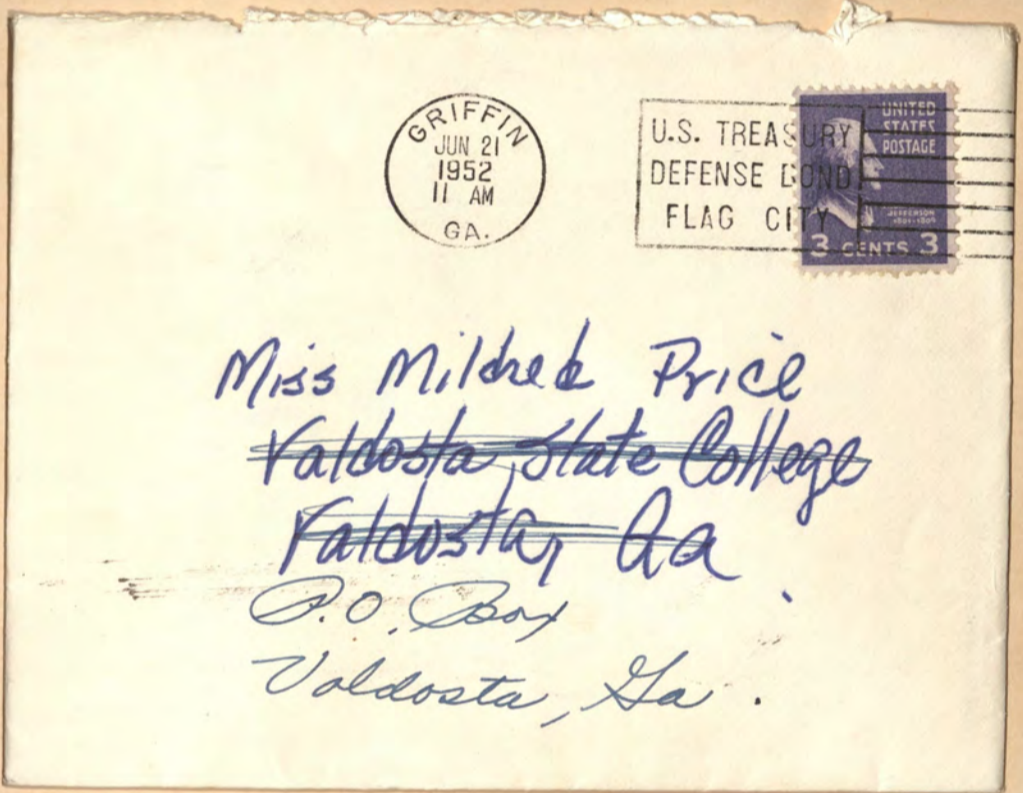 GRIFFIN
JUN 21
1952
11 AM
GA.
U.S. TREASURY
DEFENSE BOND
FLAG CITY
UNITED
STATES
POSTAGE
JEFFERSON
1801-1809
3 CENTS 3
Miss Mildred Price
Valdosta State College
Valdosta, Ga
P.O. Box
Valdosta, Ga.